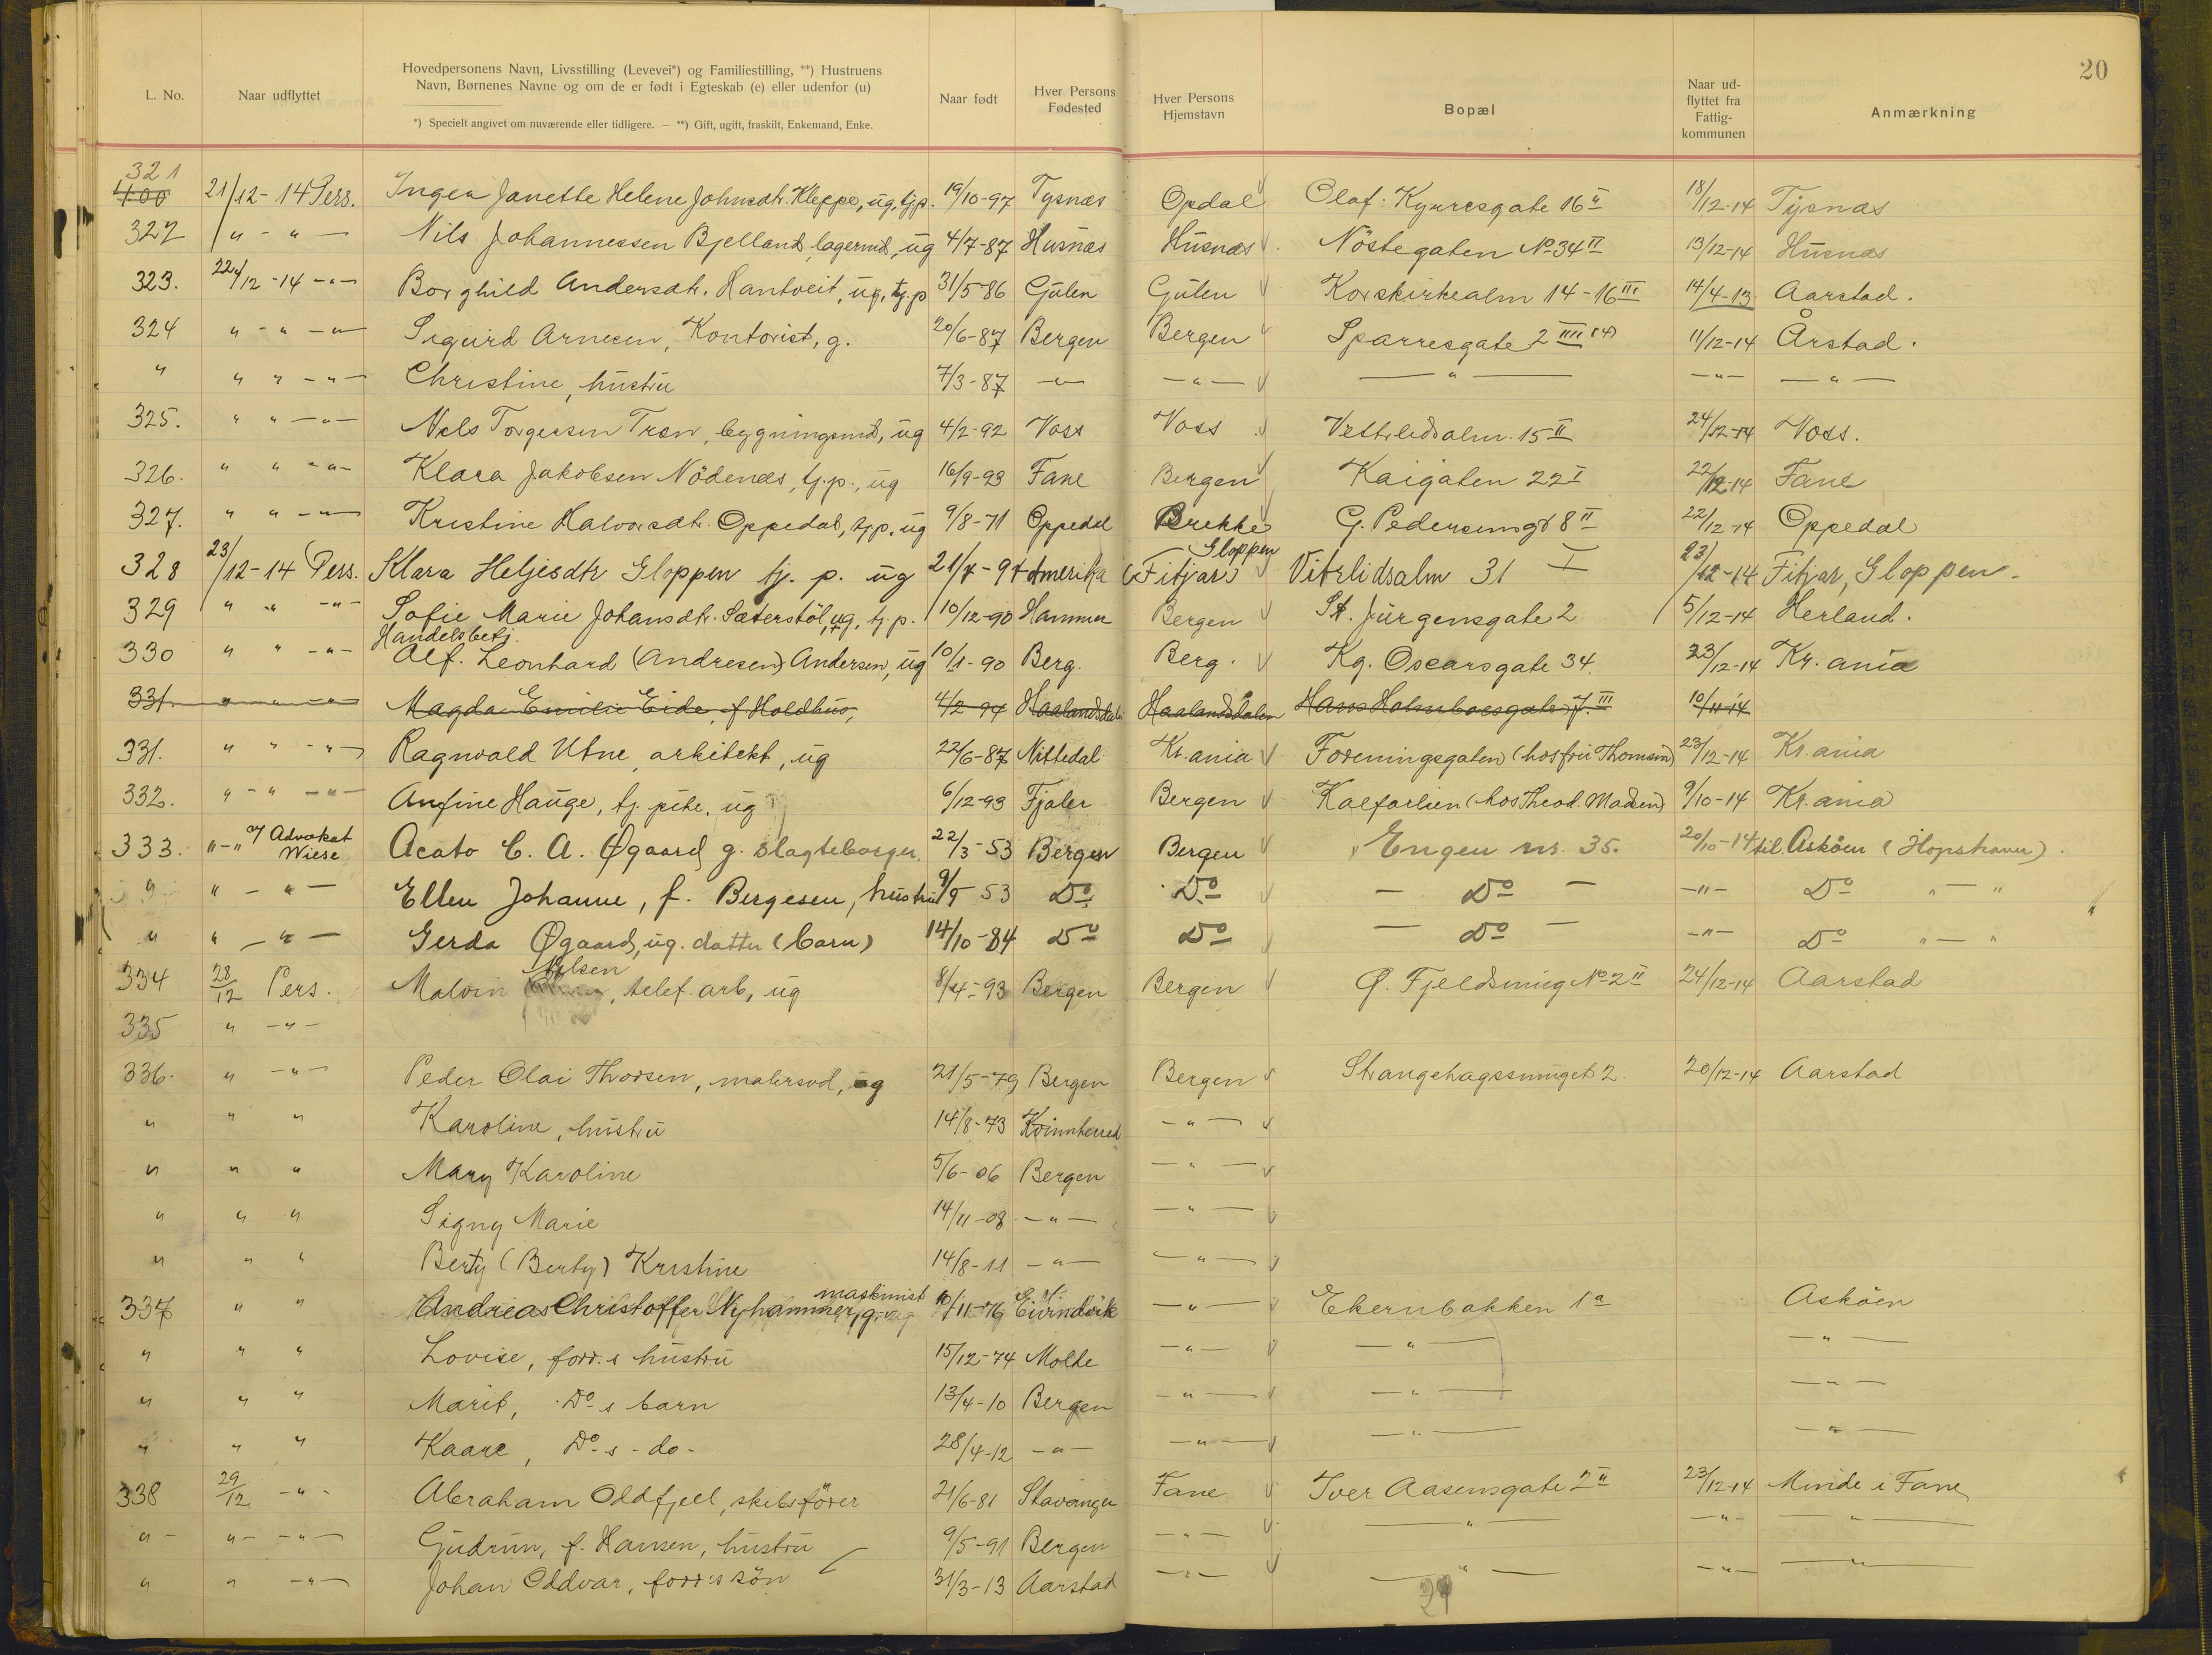 20
L. No. Naar udflyttet Hovedpersonens Navn, Livsstilling (Levevei*) og Familiestilling, **) Hustruens Navn, Børnenes Navne og om de er født i Egteskab (e) eller udenfor (u) Naar født Hver Persons Fødested Hver Persons Hjemstavn Bopæl Naar ud-flyttet fra Fattig-kommunen Anmærkning
*) Specielt angivet om nuværende eller tidligere. — **) Gift, ugift, fraskilt, Enkemand, Enke.
321
400 21/12-14 Pers. Inger Janette Helene Johnsdtr. Kleppe, ug, tj.p. 19/10-97 Tysnæs Opdal Olaf Kyrresgate 16 II 18/12-14 Tysnæs
322 " - " - Nils Johannessen Bjelland, lagermd, ug 4/7-87 Husnæs Husnæs Nöstegaten No 34 II 13/12-14 Husnæs
323. 22/12-14 -"- Borghild Andersdtr. Hantveit, ug, tj.p 31/5-86 Gulen Gulen Korskirkealm 14-16 III 14/4-13 Aarstad.
324 " - " -"- Sigurd Arnesen, Kontorist, g. 20/6-87 Bergen Bergen Sparresgate 2 IIII (4) 11/12-14 Årstad.
" " " -"- Christine, hustru 7/3-87 -"- -"- -"- -"- -"-
325. " " -"- Nils Torgersen Tren, bygningsmd, ug 4/2-92 Voss Voss Vettrlidsalm. 15 II 24/12-14 Voss.
326. " " -"- Klara Jakobsen Nödenes, tj.p., ug 16/9-93 Fane Bergen Kaigaten 22 I 22/12-14 Fane
327. " " -"- Kristine Halvorsdtr. Oppedal, tj.p. ug 9/8-71 Oppedal Brekke G. Pedersensgt 8 II 22/12-14 Oppedal
328 23/12-14 Pers. Klara Heljesdtr Gloppen tj. p. ug 21/7-94 Amerika (Fitjar) Gloppen Vitrlidsalm 31 I 23/12-14 Fitjar, Gloppen.
329 " " -"- Sofie Marie Johansdtr. Sæterstöl, ug, tj.p. 10/12-90 Hammer Bergen St. Jürgensgate 2 5/12-14 Herland.
Handelsbetj.
330 " " -"- Alf. Leonhard (Andresen) Andersen, ug 10/1-90 Berg. Berg. Kg. Oscarsgate 34. 23/12-14 Kr. ania
331. " " -"- Magda Emilie Eide, f. Holdhus, 4/2-94 Haalandsdal Haalandsdalen Hans Holmboesgate 7 III 10/11-14
331. " " -"- Ragnvald Utne, arkitekt, ug 22/6-87 Nittedal Kr. ania Foreningsgaten (hos fru Thomsen) 23/12-14 Kr. ania
332. " - " -"- Anfine Hauge, tj. pike, ug 6/12-93 Fjaler Bergen Kalfarlien (hos Theod. Madsen) 9/10-14 Kr. ania
333. " - " v/ Advokat Wiese Acato C. A. Øgaard, g. slagteborger. 22/3-53 Bergen Bergen Engen nr. 35. 20/10-14 til Asköen (Hopshavn).
" " - " - Ellen Johanne, f. Bergesen, hustru 9/5 53 Do Do - Do - -"- Do " - "
" " - " - Gerda Øgaard, ug. datter (barn) 14/10-84 Do Do - Do - -"- Do " - "
334 28/12 Pers. Malvin Nilsen, telef. arb, ug 8/4-93 Bergen Bergen Ø. Fjeldsmug No 2 II 24/12-14 Aarstad
335 " -"-
336. " -"- Peder Olai Thorsen, malersvd, g 21/5-79 Bergen Bergen Strangehagssmuget 2 20/12-14 Aarstad
" " " Karoline, hustru 14/8-73 Kvinnherred -"-
" " " Mary Karoline 5/6-06 Bergen -"-
" " " Signy Marie 14/11-08 -"- -"-
" " " Berty (Berty) Kristine 14/8-11 -"- -"-
337 " " Andreas Christoffer Nyhammer, g. maskinist 10/11-76 Eivindvik -"- Ekernbakken 1a Asköen
" " " Lovise, forr.s hustru 15/12-74 Molde -"- -"- -"-
" " " Marit, Do s barn 13/4-10 Bergen -"- -"- -"-
" " " Kaare, Do s - do - 28/4-12 -"- -"- -"- -"-
338 29/12 -"- Abraham Oddfjell, skibsförer 21/6-81 Stavanger Fane Iver Aasensgate 2 II 23/12-14 Minde i Fane
" - " - -"- Gudrun, f. Hansen, hustru 9/5-91 Bergen -"- -"- -"- -"-
" " -"- Johan Oddvar, forr's sön 31/3-13 Aarstad -"- -"- -"- -"-
29